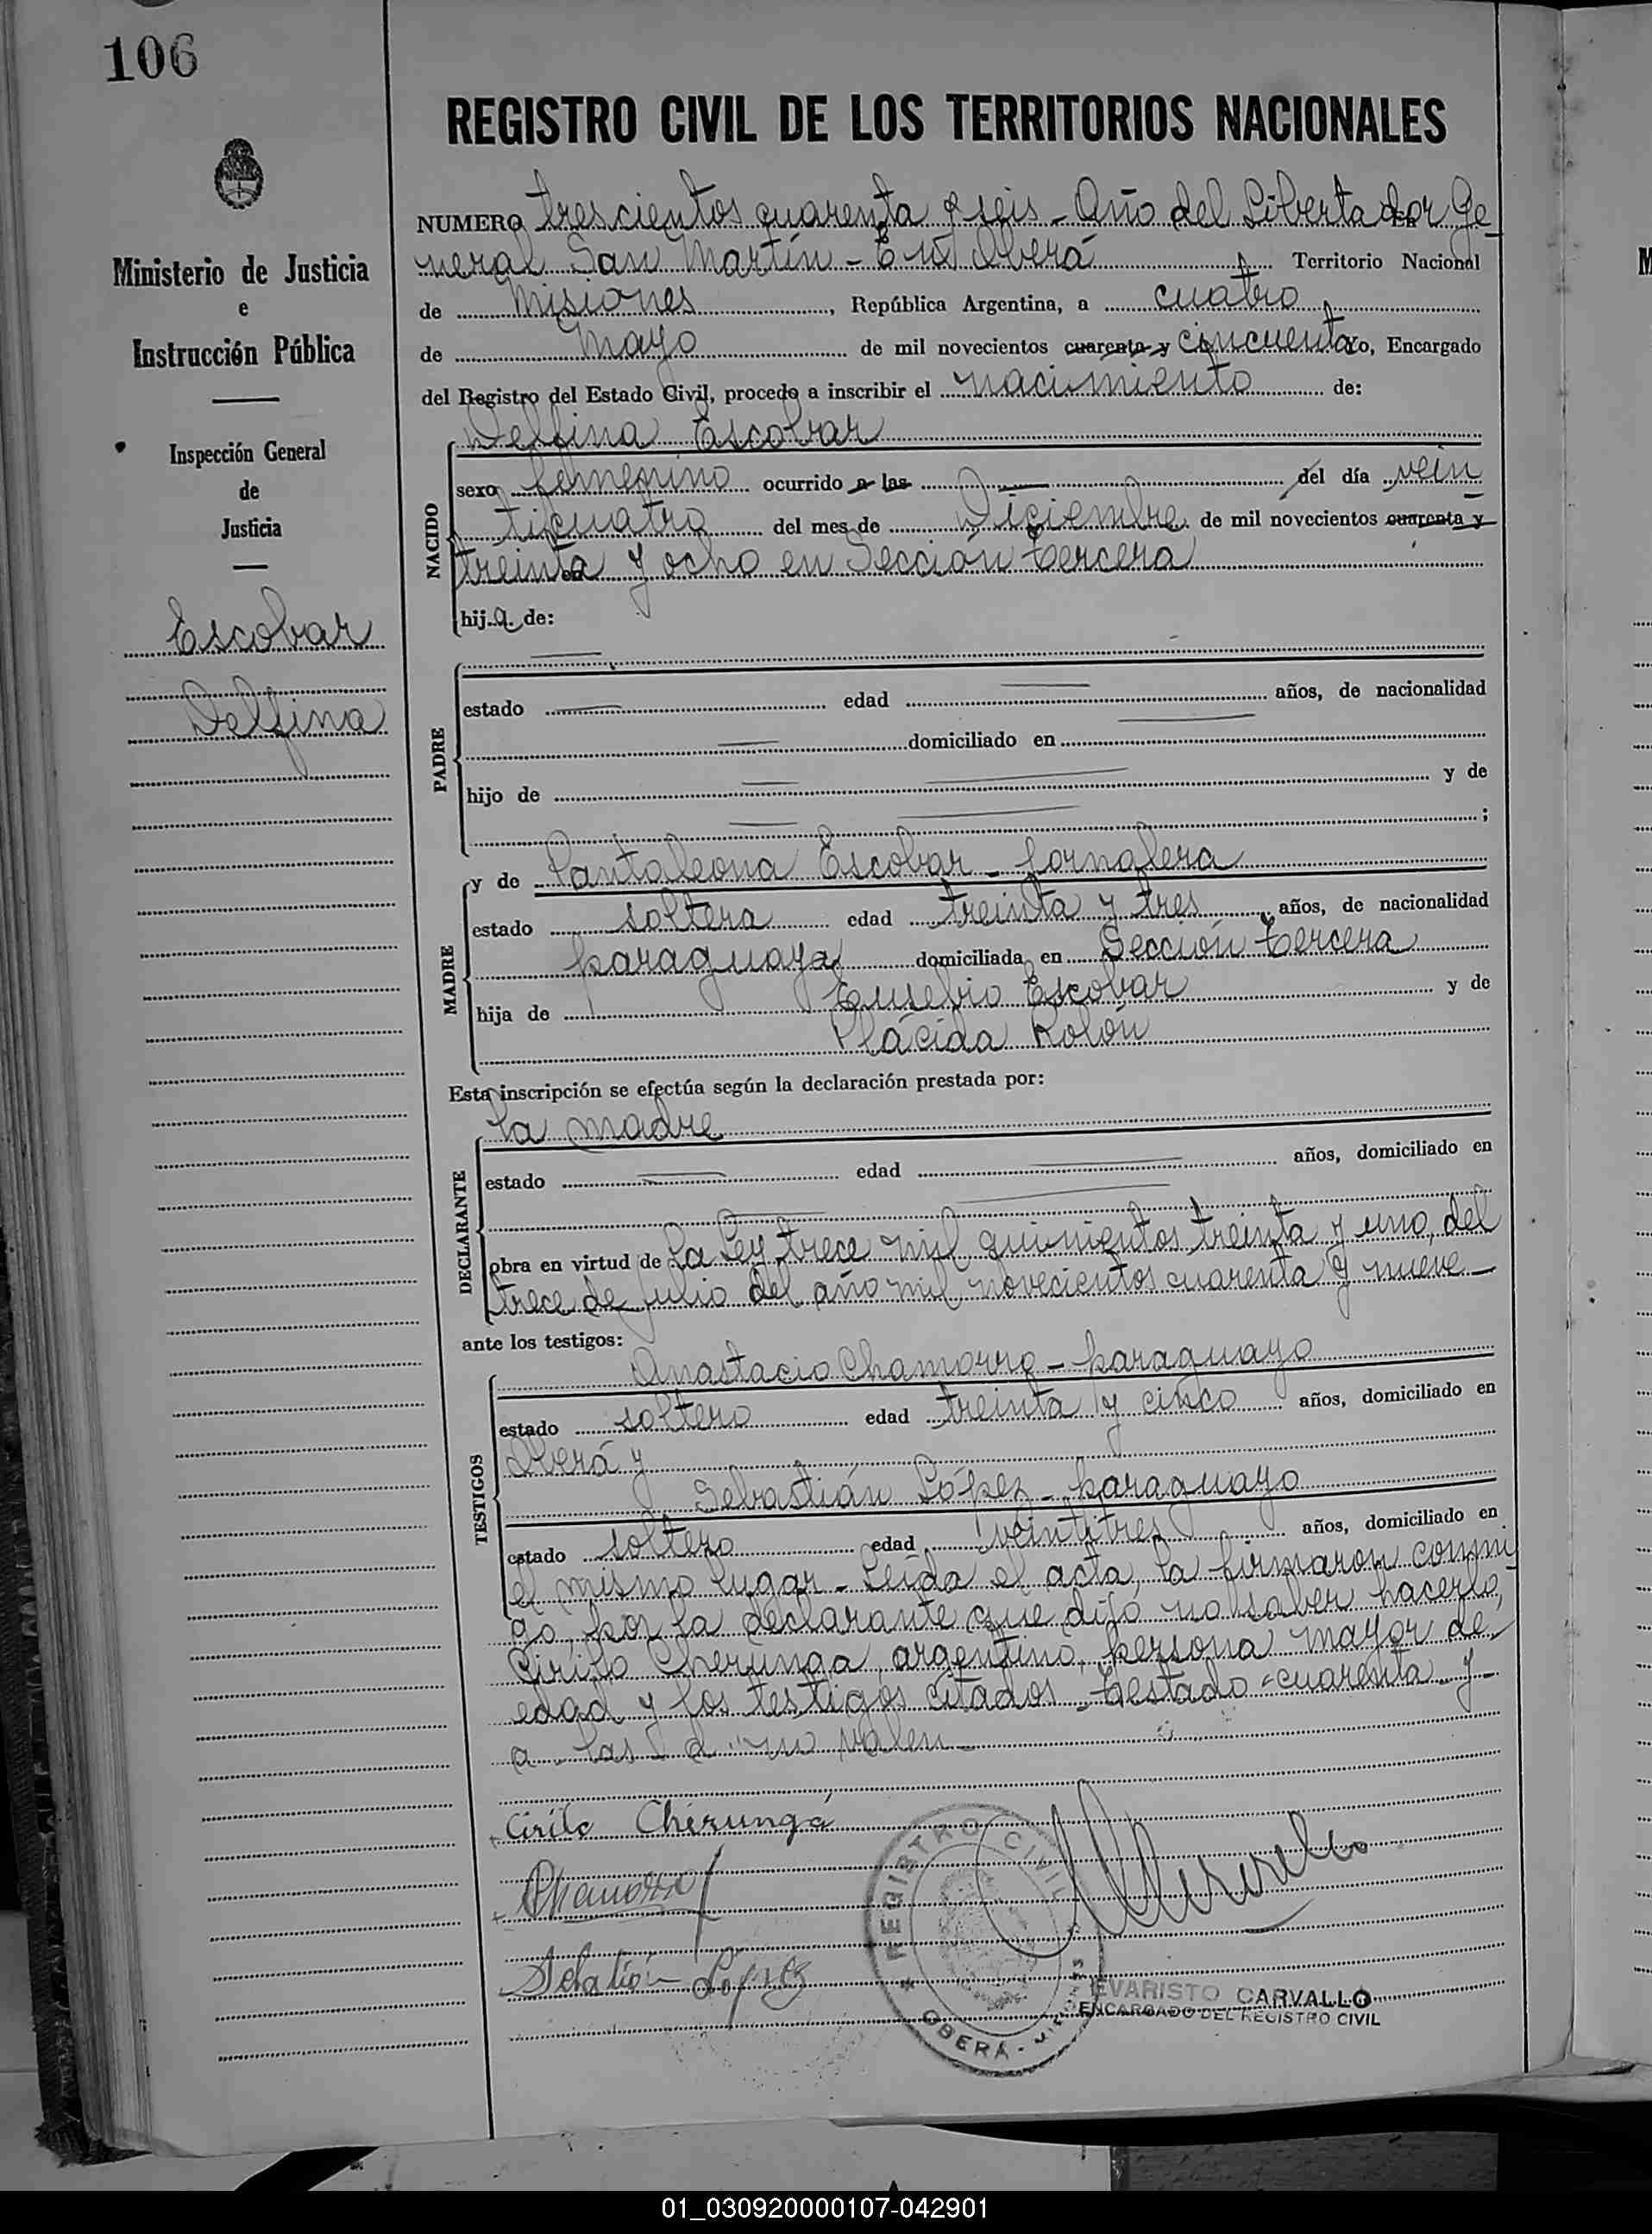 106
REGISTRO CIVIL DE LOS TERRITORIOS NACIONALES
Ministerio de Justicia
e
Instrucción Pública
Inspección General
de
Justicia
Escobar
Delfina
NUMERO trescientos cuarenta y seis - Año del Libertador Ge-
neral San Martín - En Oberá Territorio Nacional
de Misiones, República Argentina, a cuatro
de Mayo de mil novecientos cuarenta y cincuenta yo, Encargado
del Registro del Estado Civil, procedo a inscribir el nacimiento de:
Delfina Escobar
NACIDO
sexo femenino ocurrido a las del día vein
ticuatro del mes de Diciembre de mil novecientos cuarenta y
treinta y ocho en Sección tercera
hija de:
PADRE
estado edad años, de nacionalidad
domiciliado en
hijo de y de
;
MADRE
y de Pantaleona Escobar - Jornalera
estado soltera edad treinta y tres años, de nacionalidad
paraguaya domiciliada en Sección tercera
hija de Eusebio Escobar y de
Plácida Rolón
Esta inscripción se efectúa según la declaración prestada por:
DECLARANTE
la madre
estado edad años, domiciliado en
obra en virtud de La Ley trece mil quinientos treinta y uno, del
trece de Julio del año mil novecientos cuarenta y nueve
ante los testigos:
TESTIGOS
Anastacio Chamorro - paraguayo
estado soltero edad treinta y cinco años, domiciliado en
Oberá y
Sebastián López - paraguayo
estado soltero edad veintitres años, domiciliado en
el mismo lugar - Leída el acta, la firmaron conmi
go, por la declarante que dijo no saber hacerlo,
Cirilo Cherunga, argentino, persona mayor de
edad y los testigos citados - testado - cuarenta y -
a las d no valen -
Cirilo Cherunga
Chamorro
Sebatión López
REGISTRO CIVIL
OBERÁ - MISIONES
EVARISTO CARVALLO
ENCARGADO DEL REGISTRO CIVIL
01_030920000107-042901